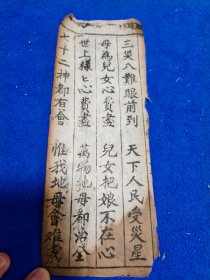 三災八難眼前到 天下人民受災星
母為兒女心費盡 兒女把娘不在心
世上樣匕心費盡 萬物地母都治全
七十二神都有會 惟我地母會难成